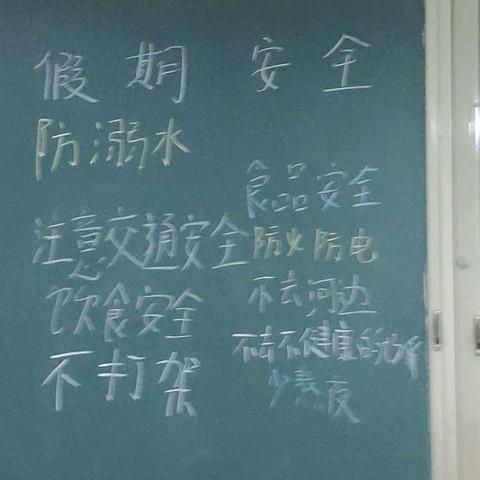 假期 安全
防溺水
注意交通安全
饮食安全
不打架
食品安全
防火防电
不去河边
不去不健康的场所
少熬夜